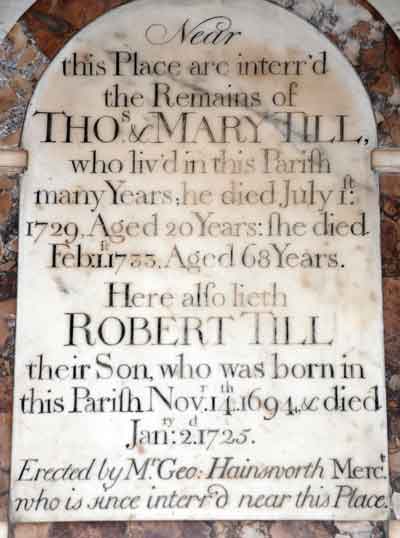 Near
this Place are interr'd
the Remains of
THOˢ. & MARY TILL,
who liv'd in this Pariſh
many Years; he died July 1ˢᵗ.
1729. Aged 20 Years: ſhe died
Feb: 1ˢᵗ. 1733. Aged 68 Years.
Here alſo lieth
ROBERT TILL
their Son, who was born in
this Pariſh Novʳ. 14ᵗʰ. 1694, & died
Janʳʸ: 2ᵈ. 1725.
Erected by Mʳ. Geo: Hainsworth Mercʳ.
who is since interr'd near this Place.